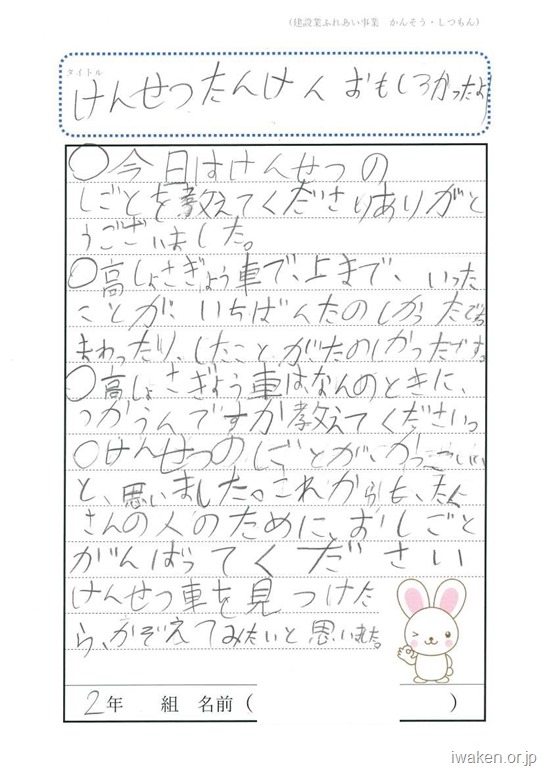 （建設業ふれあい事業　かんそう・しつもん）
タイトル
けんせつたんけん おもしろかったよ
○今日はけんせつの
しごとを教えてくださりありがと
うございました。
○高しょさぎょう車で、上まで、いった
ことが、いちばんたのしかったです。
まわったり、したことがたのしかったです。
○高しょさぎょう車はなんのときに、
つかうんですか教えてください。
○けんせつのしごとが、かっこいい
と、思いました。これからも、たく
さんの人のために、おしごと
がんばってください
けんせつ車を見つけた
ら、かぞえてみたいと思いました。
2年　組　名前（　）
iwaken.or.jp